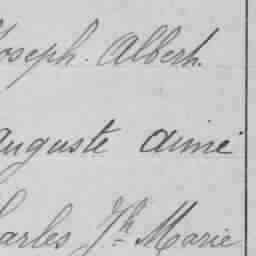 Joseph. Albert.
Auguste aimé
Charles Jh Marie